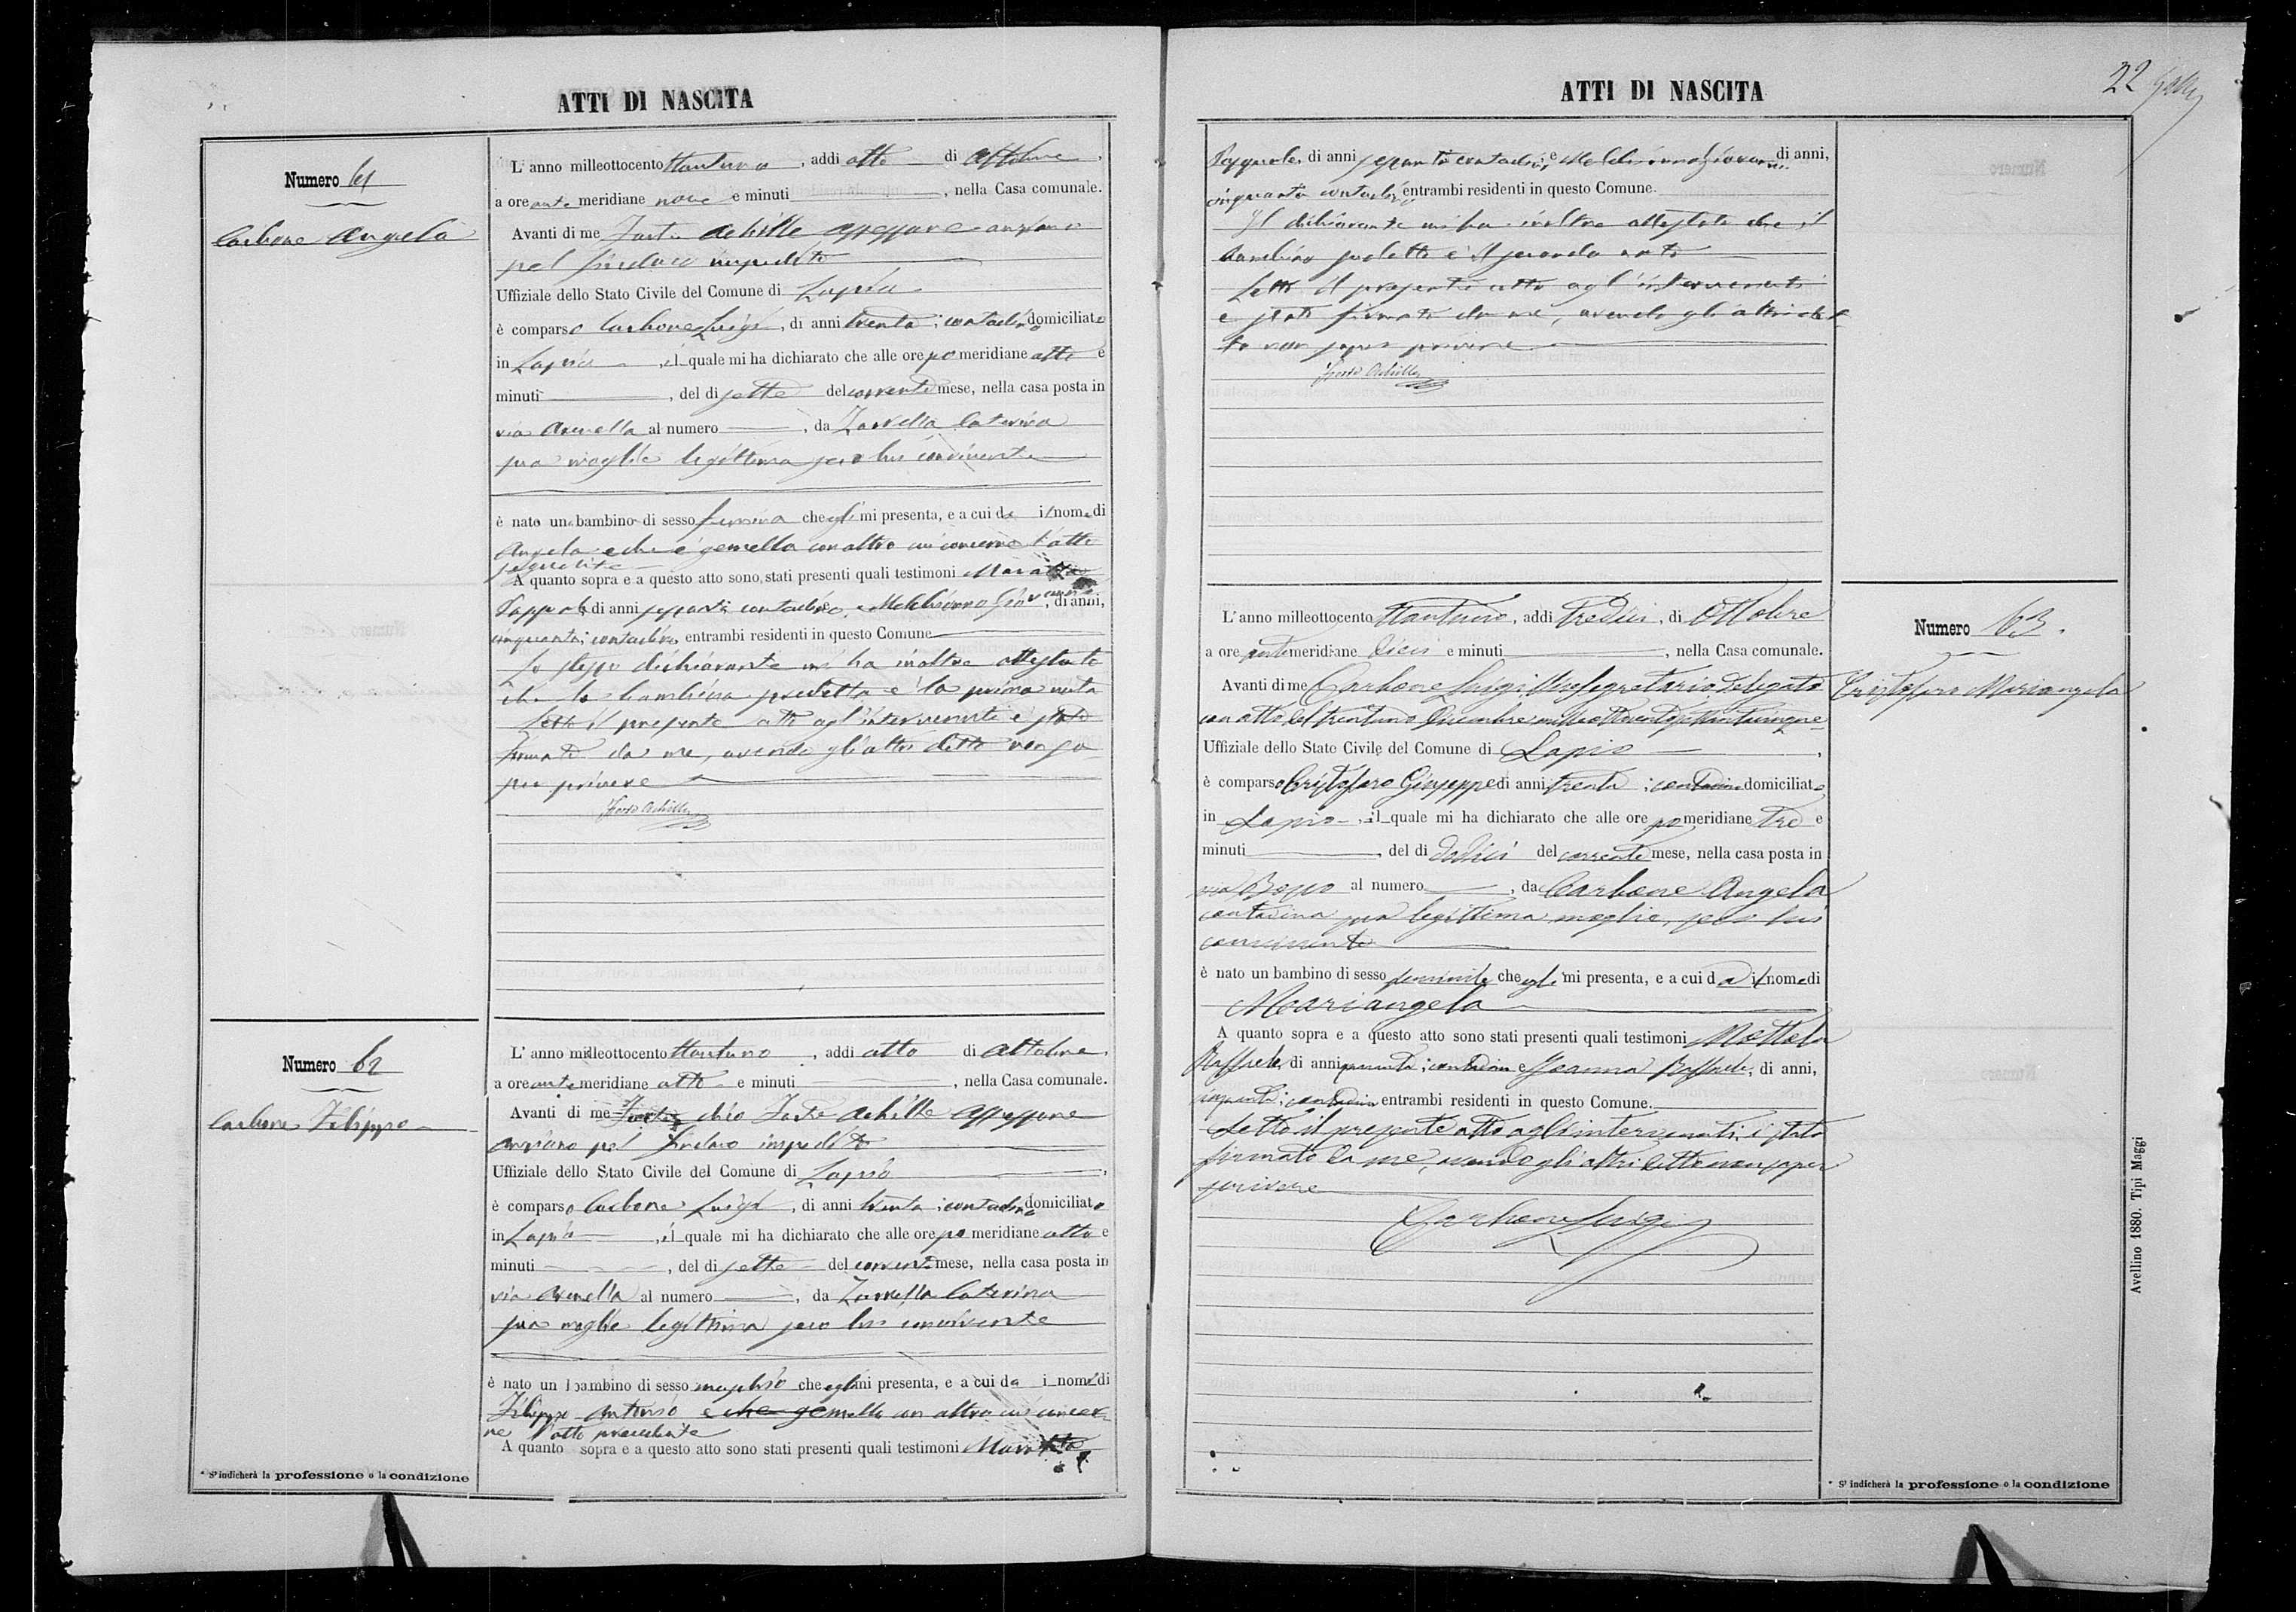 ATTI DI NASCITA
Numero 61
Carbone Angela
L'anno milleottocento ttantuno, addi otto di Ottobre,
a ore ante meridiane nove e minuti, nella Casa comunale.
Avanti di me Forte Achille assessore anziano
pel Sindaco impedito
Uffiziale dello Stato Civile del Comune di Lapio
è comparso Carbone Luigi, di anni trenta; contadino domiciliato
in Lapio, il quale mi ha dichiarato che alle ore po meridiane otto e
minuti, del di sette del corrente mese, nella casa posta in
via Arenella al numero, da Zarrella Caterina
sua moglie legittima seco lui convivente
è nato un bambino di sesso femina che egli mi presenta, e a cui da il nome di
Angela e che è gemella con altro cui concerne l'atto
seguente
A quanto sopra e a questo atto sono stati presenti quali testimoni
di anni sessanta contadino, e Melchionno Giovanni, di anni,
cinquanta; contadino, entrambi residenti in questo Comune
Lo stesso dichiarante mi ha inoltre attestato
che la bambina predetta è la prima nata
Letto il presente atto agl'intervenuti è stato
firmato da me, avendo gli altri detto non sa
per scrivere
Forte Achille
Numero 62
Carbone Filippo
L'anno milleottocento ttantuno, addi otto di Ottobre,
a ore ante meridiane otto e minuti, nella Casa comunale.
Avanti di me Forte Achille Assessore
anziano pel Sindaco impedito
Uffiziale dello Stato Civile del Comune di Lapio,
è comparso Carbone Luigi, di anni trenta; contadino domiciliato
in Lapio, il quale mi ha dichiarato che alle ore po meridiane otto e
minuti, del di sette del corrente mese, nella casa posta in
via Arenella al numero, da Zarrella Caterina
sua moglie legittima seco lui convivente
è nato un bambino di sesso maschio che egli mi presenta, e a cui da i nome di
Filippo Antonio e che gemello con altra cui concer
ne l'atto precedente
A quanto sopra e a questo atto sono stati presenti quali testimoni
* Si indicherà la professione o la condizione
ATTI DI NASCITA
22
di anni sessanta contadino, e Melchionno Giovanni di anni,
cinquanta contadino, entrambi residenti in questo Comune.
Il dichiarante mi ha inoltre attestato che il
bambino predetto è il secondo nato
Letto il presente atto agl'intervenuti
è stato firmato da me, avendo gli altri det
to non saper scrivere
Forte Achille
L'anno milleottocento ttantuno, addi tredici, di Ottobre
a ore ante meridiane dieci e minuti, nella Casa comunale.
Avanti di me Carbone Luigi Segretario delegato
con atto del trentuno Dicembre milleottocentosettantacinque
Uffiziale dello Stato Civile del Comune di Lapio,
è comparso Cristofaro Giuseppe di anni trenta; contadino domiciliato
in Lapio, il quale mi ha dichiarato che alle ore po meridiane tre e
minuti, del di dodici del corrente mese, nella casa posta in
via al numero, da Carbone Angela
contadina sua legittima moglie, seco lui
convivente
è nato un bambino di sesso feminile che egli mi presenta, e a cui da il nome di
Mariangela
A quanto sopra e a questo atto sono stati presenti quali testimoni Mottola
Raffaele, di anni; contadino e Raffaele, di anni,
cinquanta; contadino entrambi residenti in questo Comune.
Letto il presente atto agli intervenuti, è stato
firmato da me, avendo gli altri detto non saper
scrivere
Carbone Luigi
Numero 63.
Cristofaro Mariangela
Avellino 1880. Tipi Maggi
* Si indicherà la professione o la condizione